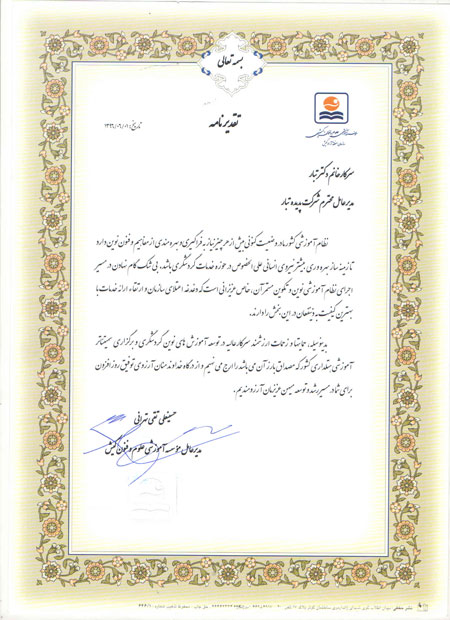 بسمه تعالی
تقدیرنامه
تاریخ:
سرکار خانم دکتر تبار
مدیرعامل محترم شرکت پدیده تبار
نظام آموزشی کشور ما در وضعیت کنونی بیش از هر چیز نیاز به فراگیری و بهره مندی از مفاهیم و فنون نوین دارد
تا زمینه ساز بهره وری بیشتر نیروی انسانی علی الخصوص در حوزه خدمات گردشگری باشد. بی شک گام نهادن در مسیر
اجرای نظام آموزشی نوین و تکوین مستمر آن، خاص عزیزانی است که دغدغه اعتلای سازمان و ارتقاء ارائه خدمات با
بهترین کیفیت به ذینفعان در این بخش را دارند.
بدینوسیله، حمایتها و زحمات ارزشمند سرکارعالیه در توسعه آموزش های نوین گردشگری و برگزاری سمیناز
آموزشی هتلداری کشور که مصداق بارز آن می باشد را ارج می نهیم و از درگاه خداوند منان آرزوی توفیق روزافزون
برای شما در مسیر رشد و توسعه میهن عزیزمان آرزومندیم.
حسینعلی تقی تهرانی
مدیرعامل مؤسسه آموزشی علوم و فنون کیش